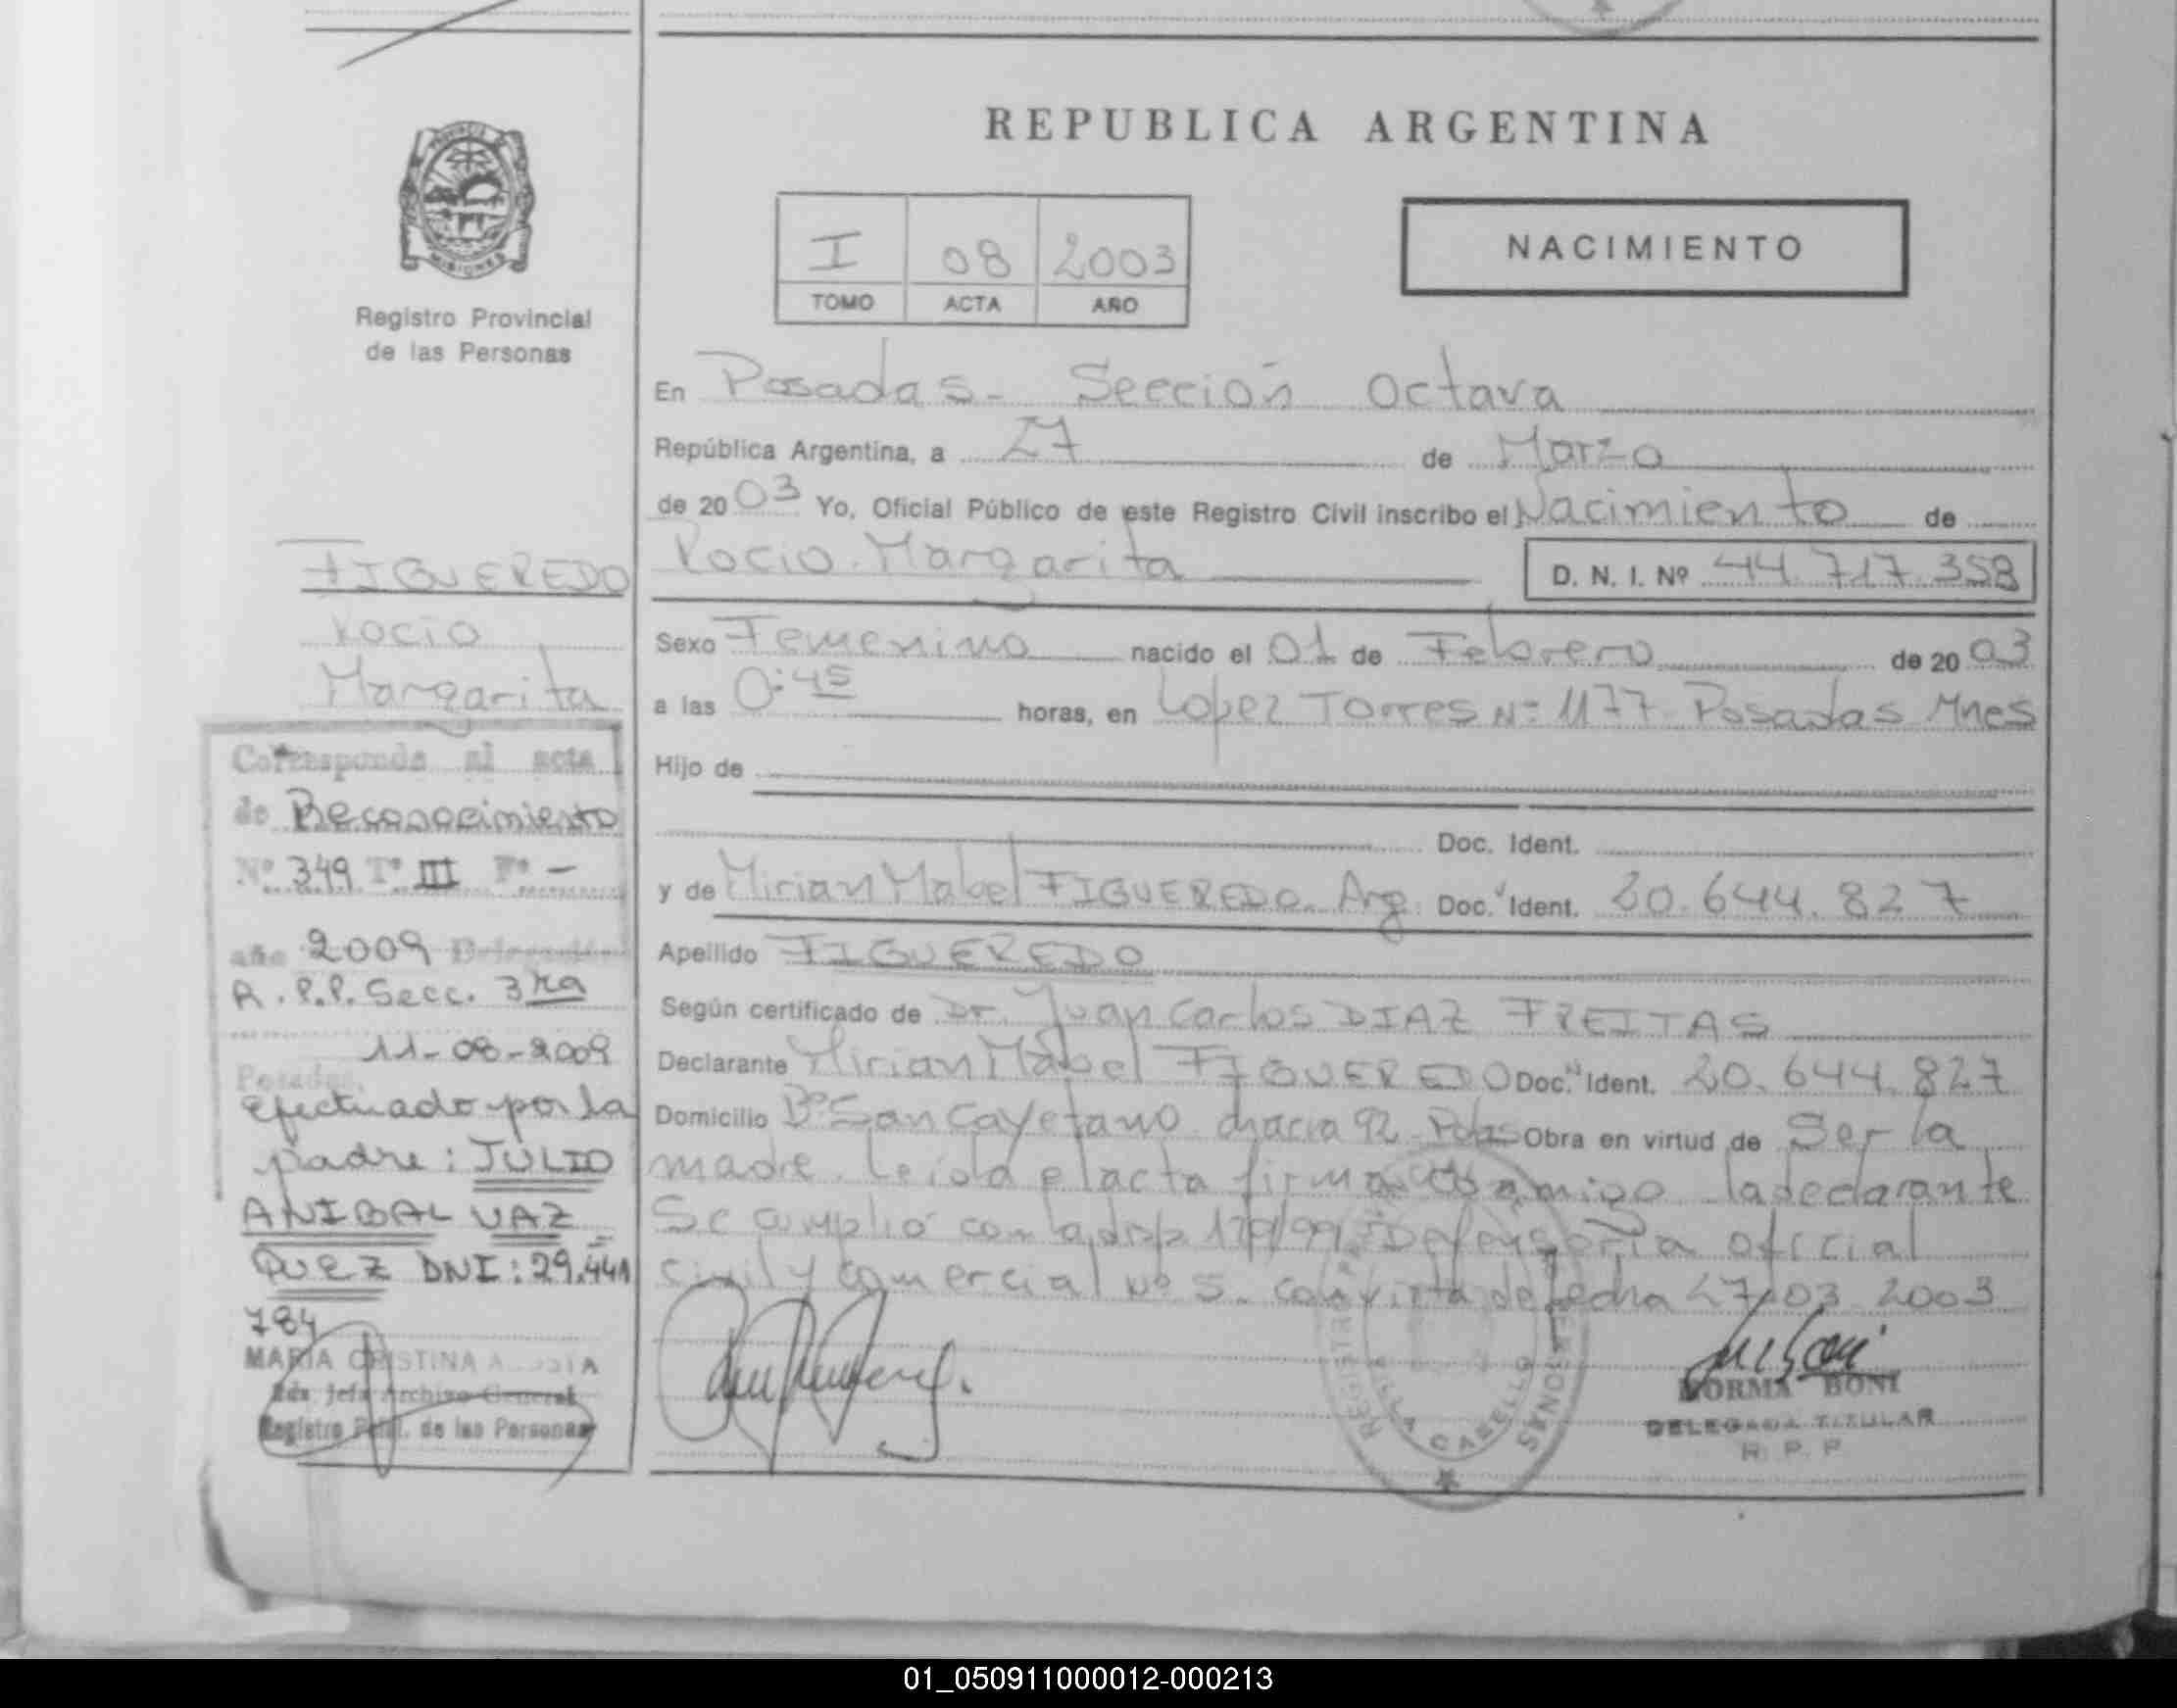 REPUBLICA ARGENTINA
PROVINCIA
MISIONES
Registro Provincial
de las Personas
I 08 2003
TOMO ACTA AÑO
NACIMIENTO
En Posadas - Sección Octava
República Argentina, a 27 de Marzo
de 20 03 Yo, Oficial Público de este Registro Civil inscribo el Nacimiento de
Rocio Margarita D. N. I. Nº 44.717.358
Sexo Femenino nacido el 01 de Febrero de 20 03
a las 0:45 horas, en Lopez Torres Nº 1177 - Posadas Mnes
Hijo de
Doc. Ident.
y de Mirian Mabel FIGUEREDO. Arg. Doc. Ident. 20.644.827
Apellido FIGUEREDO
Según certificado de Dr. Juan Carlos DIAZ FREITAS
Declarante Mirian Mabel FIGUEREDO Doc. Ident. 20.644.827
Domicilio Bº San Cayetano chacra 92 - Pdas Obra en virtud de Ser la
madre. Leída el acta firma conmigo la declarante
Se amplió con 179/99 Defensoría Oficial
Civil y comercial Nº 5. de fecha 27/03 2003
NORMA BONI
DELEGADA TITULAR
R. P. P.
VILLA CABELLO
FIGUEREDO
Rocio
Margarita
Corresponde al acta
de Reconocimiento
Nº 349 Tº III Fº -
año 2009 Delegación
R.P.P. Secc. 3ra
11-08-2009
Posadas,
efectuado por la
padre: JULIO
ANIBAL VAZ
QUEZ DNI: 29.441
784
MARIA CRISTINA
Jefa Archivo General
Registro de las Personas
01_050911000012-000213